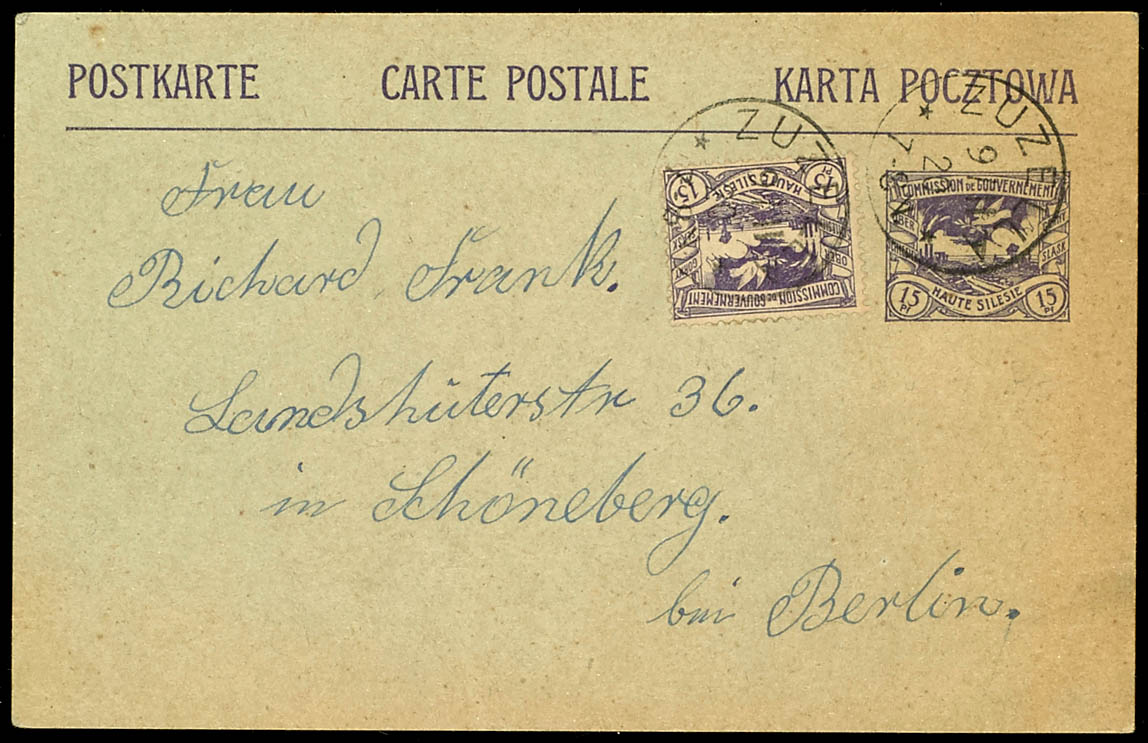 POSTKARTE CARTE POSTALE KARTA POCZTOWA
Frau
Richard Frank.
Landshuterstr 36.
in Schöneberg.
bei Berlin.
15 HAUTE SILESIE 15
COMMISSION DE GOUVERNEMENT
COMMISSION DE GOUVERNEMENT
HAUTE SILESIE
15 Pf 15 Pf
ŚLĄSK
ZUZELLA